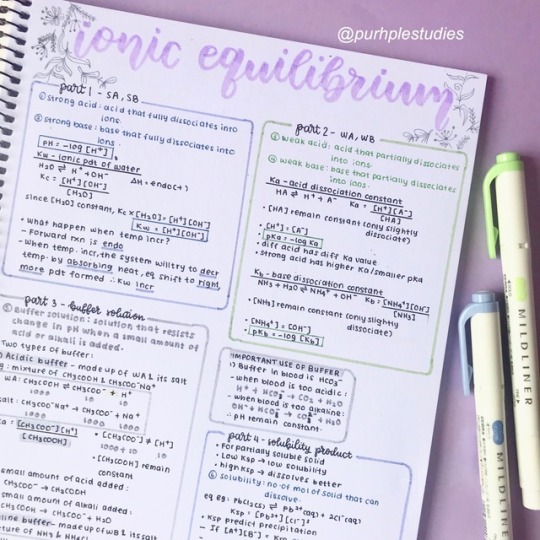 @purhplestudies
ionic equilibrium
part 1 - SA, SB
① strong acid: acid that fully dissociates into
ions.
② strong base: base that fully dissociates into
ions.
pH = -log [H⁺]
Kw - ionic pdt of water
H₂O ⇌ H⁺ + OH⁻ ΔH = endo(+)
Kc = [H⁺][OH⁻]
[H₂O]
since [H₂O] constant, Kc × [H₂O] = [H⁺][OH⁻]
Kw = [H⁺][OH⁻]
• what happen when temp incr?
- Forward rxn is endo
- When temp. incr, the system will try to decr
temp. by absorbing heat, eq. shift to right,
more pdt formed ∴ Kw incr
part 2 - WA, WB
③ weak acid: acid that partially dissociates
into ions.
④ weak base: base that partially dissociates
into ions.
Ka - acid dissociation constant
HA ⇌ H⁺ + A⁻ Ka = [H⁺][A⁻]
[HA]
• [HA] remain constant (only slightly
dissociate)
• [H⁺] = [A⁻]
• pKa = -log Ka
• diff acid has diff Ka value
• strong acid has higher Ka/smaller pKa
Kb - base dissociation constant
NH₃ + H₂O ⇌ NH₄⁺ + OH⁻ Kb = [NH₄⁺][OH⁻]
[NH₃]
• [NH₃] remain constant (only slightly
dissociate)
• [NH₄⁺] = [OH⁻]
• pKb = -log [Kb]
part 3 - buffer solution
⑤ Buffer solution: solution that resists
change in pH when a small amount of
acid or alkali is added.
Two types of buffer:
) Acidic buffer - made up of WA & its salt
g: mixture of CH₃COOH & CH₃COO⁻Na⁺
WA: CH₃COOH ⇌ CH₃COO⁻ + H⁺
1000 10 10
salt: CH₃COO⁻Na⁺ → CH₃COO⁻ + Na⁺
1000 1000 1000
a = [CH₃COO⁻][H⁺] • [CH₃COO⁻] ≠ [H⁺]
[CH₃COOH] 1000+10 10
• [CH₃COOH] remain
constant
small amount of acid added:
CH₃COO⁻ → CH₃COOH
small amount of alkali added:
→ CH₃COO⁻ + H₂O
line buffer - made up of WB & its salt
ture of NH₃ &
IMPORTANT USE OF BUFFER
1) Buffer in blood is HCO₃⁻
- when blood is too acidic:
H⁺ + HCO₃⁻ → CO₂ + H₂O
- when blood is too alkaline:
OH⁻ + HCO₃⁻ → CO₃²⁻ + H₂O
∴ pH remain constant.
part 4 - solubility product
• For partially soluble solid
• Low Ksp → low solubility
• high Ksp → dissolves better
⑥ solubility: no. of mol of solid that can
dissolve.
eg 89: PbCl₂(s) ⇌ Pb²⁺(aq) + 2Cl⁻(aq)
Ksp = [Pb²⁺][Cl⁻]²
• Ksp predict precipitation
- If [A⁺][B⁻] =
MILDLINER
MILDLINER
ZEBRA